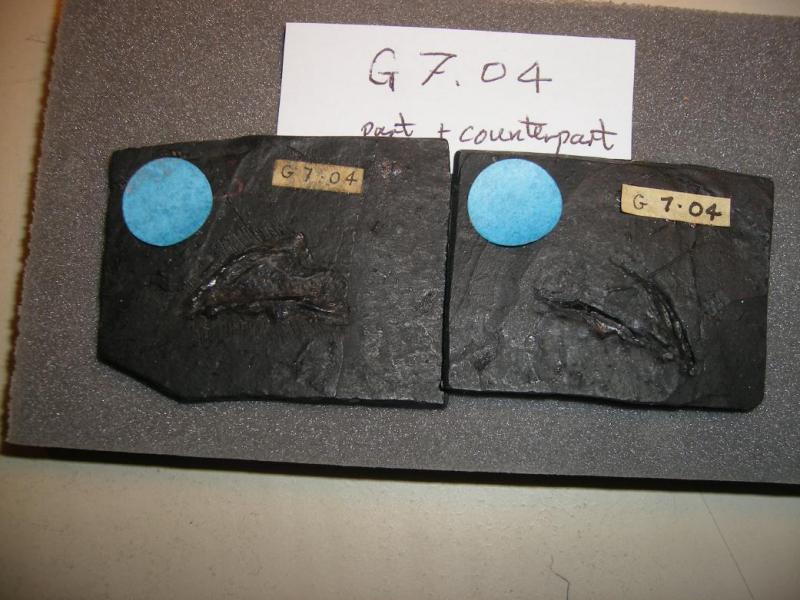 G 7.04
part + counterpart
G 7.04
G 7.04